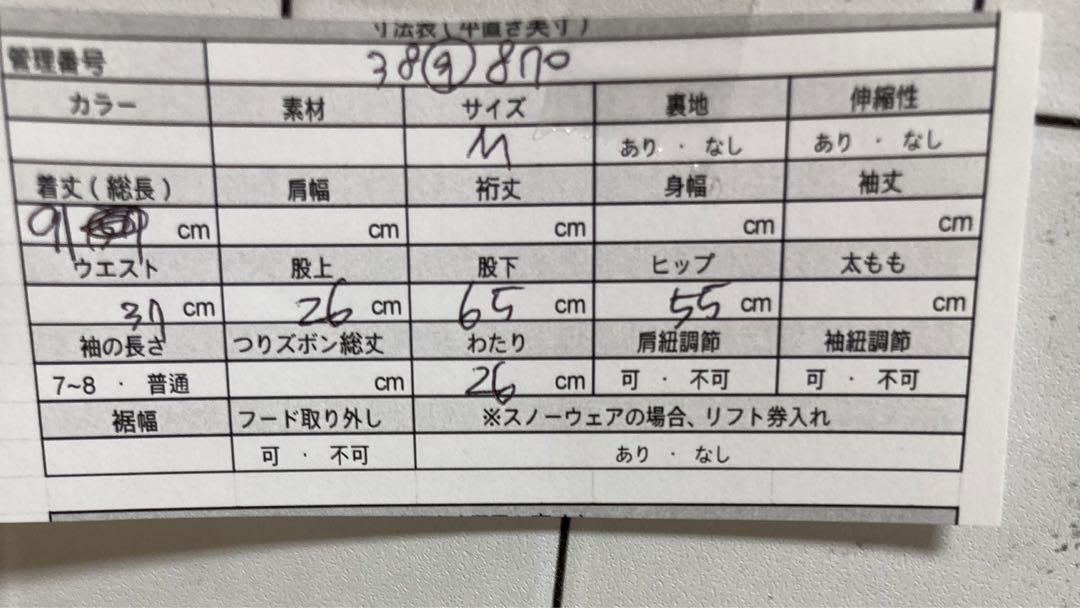 寸法表(平置き実寸)
管理番号 38㋐870
カラー 素材 サイズ 裏地 伸縮性
M あり ・ なし あり ・ なし
着丈(総長) 肩幅 裄丈 身幅 袖丈
91 cm cm cm cm cm
ウエスト 股上 股下 ヒップ 太もも
37 cm 26 cm 65 cm 55 cm cm
袖の長さ つりズボン総丈 わたり 肩紐調節 袖紐調節
7~8 ・ 普通 cm 26 cm 可 ・ 不可 可 ・ 不可
裾幅 フード取り外し ※スノーウェアの場合、リフト券入れ
可 ・ 不可 あり ・ なし